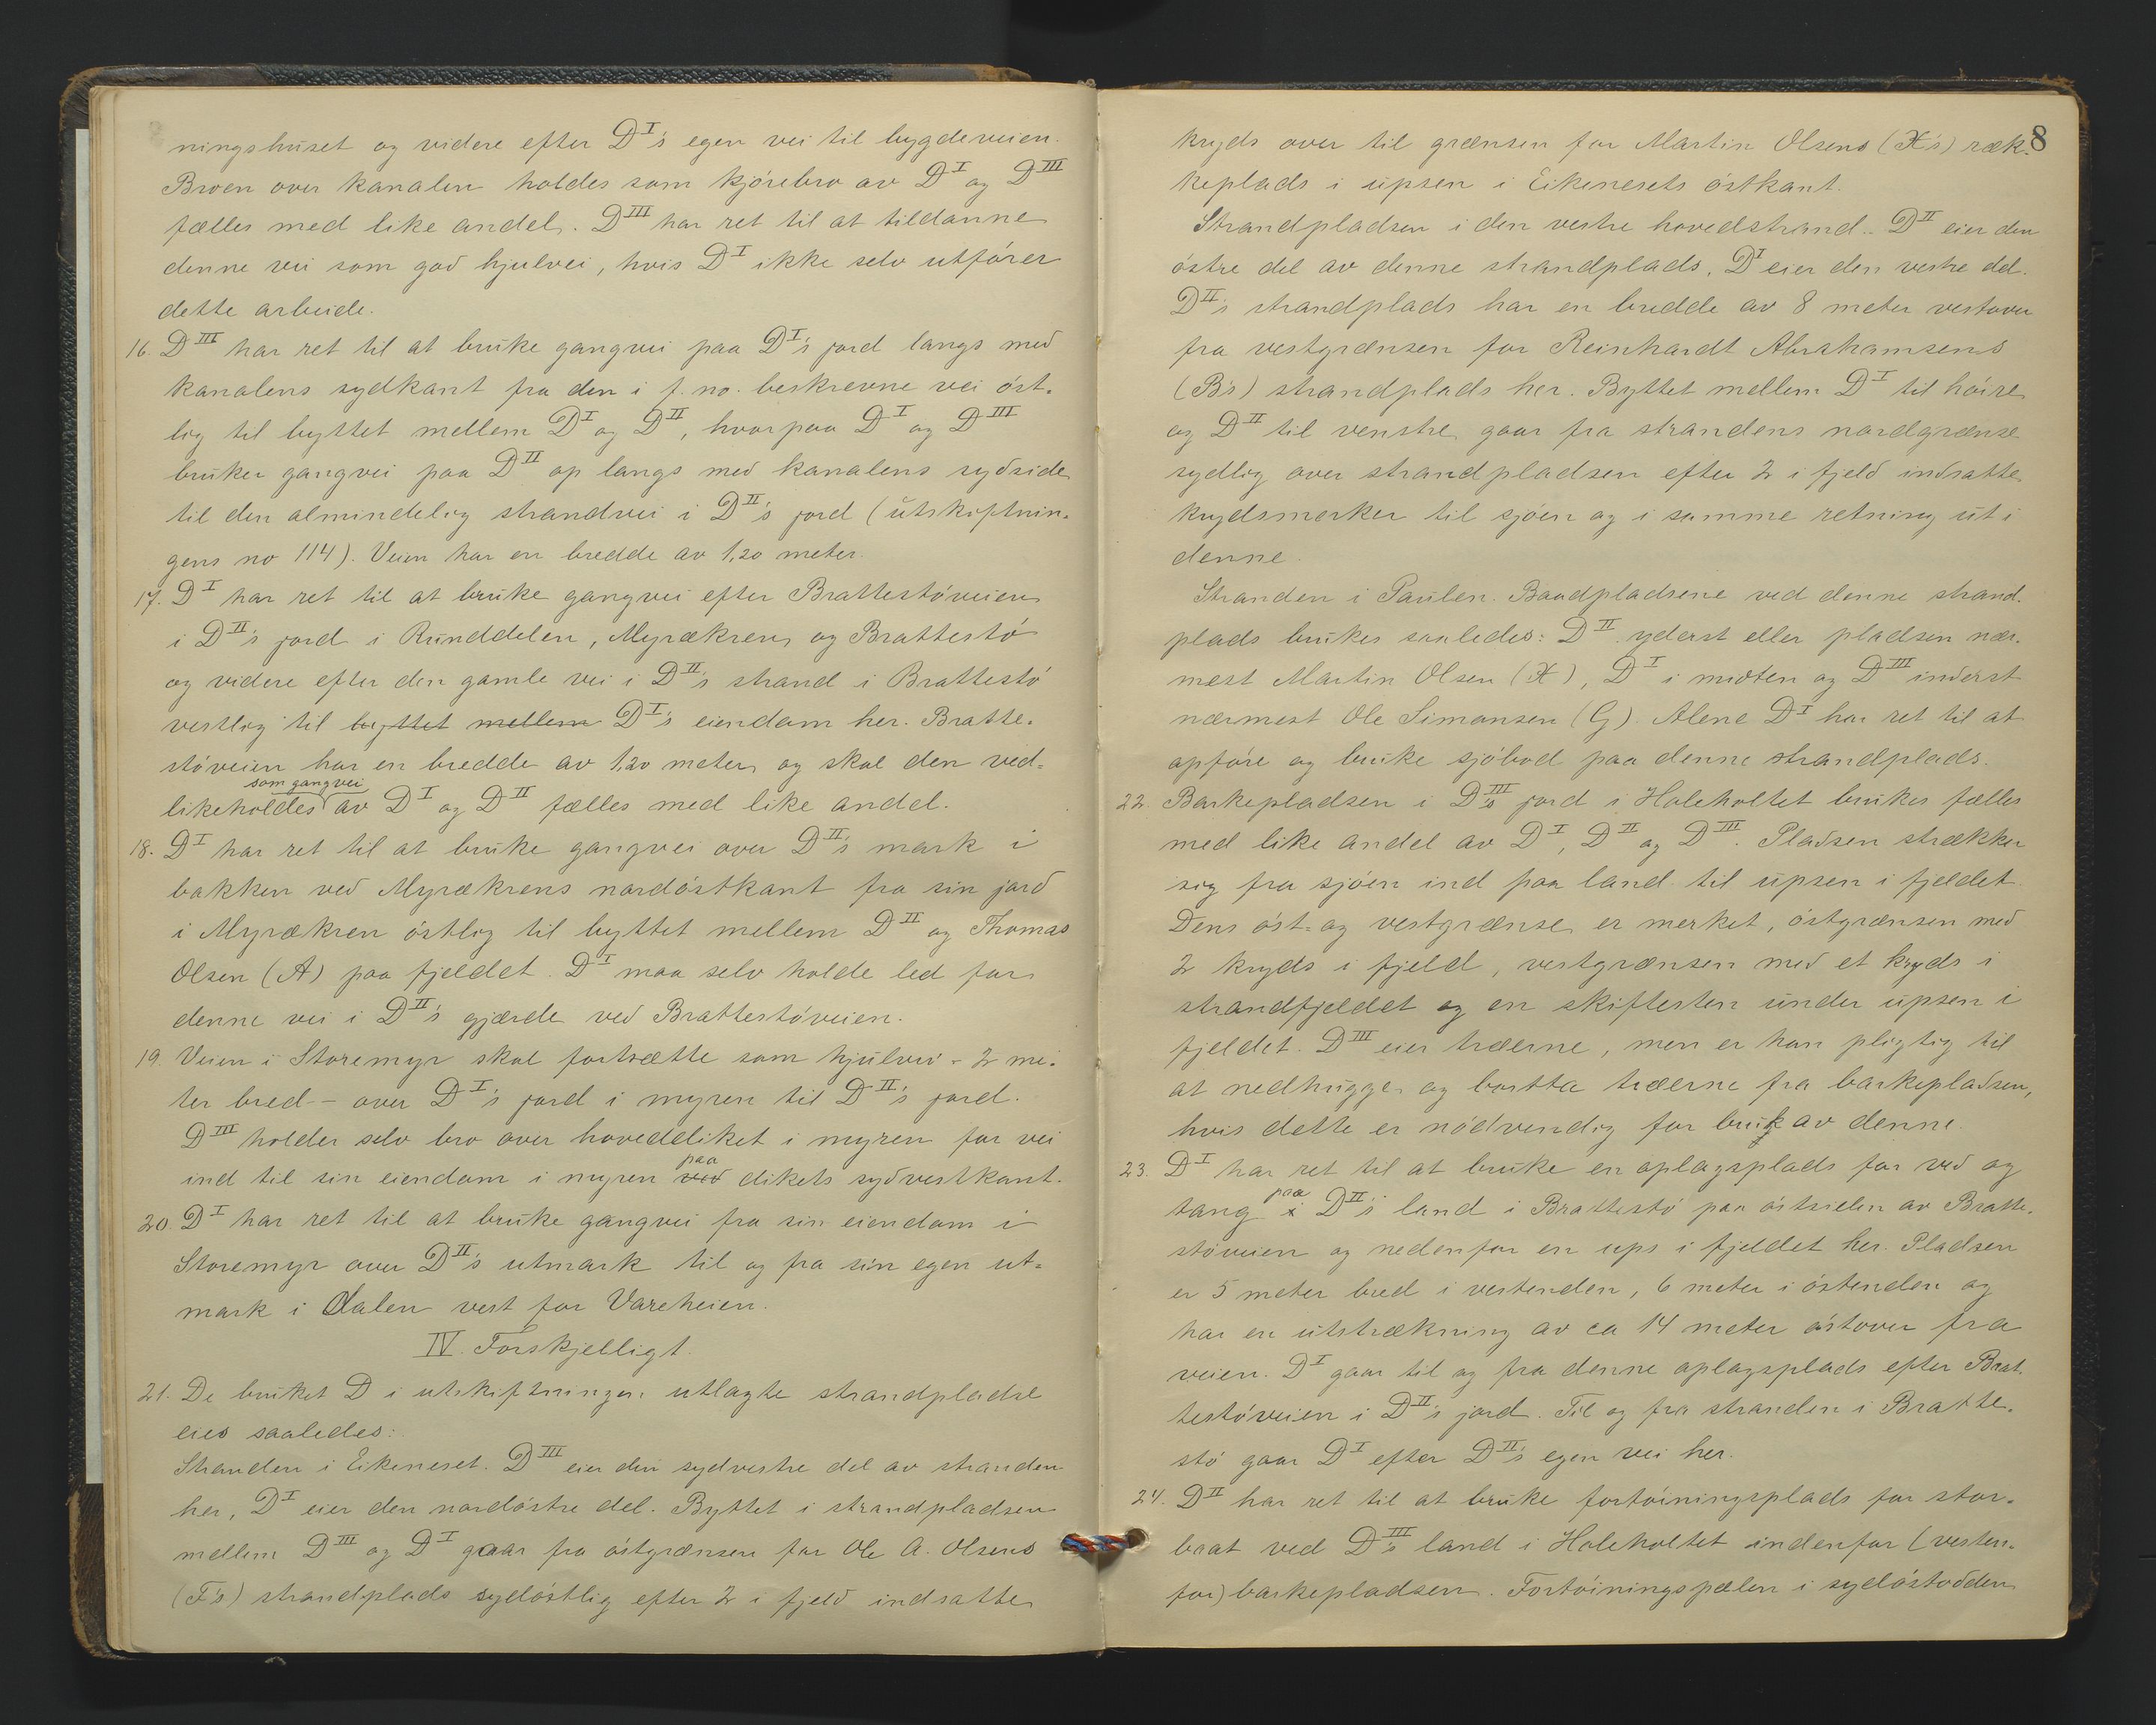 ningshuset og videre efter D<sup>I</sup>'s egen vei til bygdeveien.
Broen over kanalen holdes som kjörebro av D<sup>I</sup> og D<sup>III</sup>
fælles med like andel. D<sup>III</sup> har ret til at tildanne
denne vei som god hjulvei, hvis D<sup>I</sup> ikke selv utförer
dette arbeide.
16. D<sup>III</sup> har ret til at bruke gangvei paa D<sup>I</sup>'s jord langs med
kanalens sydkant fra den i f. no. beskrevne vei öst-
lig til byttet mellem D<sup>I</sup> og D<sup>II</sup>, hvorpaa D<sup>I</sup> og D<sup>III</sup>
bruker gangvei paa D<sup>II</sup> op langs med kanalens sydside
til den almindelig strandvei i D<sup>II</sup>'s jord (utskiftnin-
gens no 114). Veien har en bredde av 1,20 meter.
17. D<sup>I</sup> har ret til at bruke gangvei efter Brattestöveien
i D<sup>II</sup>'s jord i Runddelen, Myrækren og Brattestö
og videre efter den gamle vei i D<sup>II</sup>'s strand i Brattestö
vestlig til ~~byttet mellem~~ D<sup>I</sup>'s eiendom her. Bratte-
stöveien har en bredde av 1,20 meter og skal den ved-
som gangvei
likeholdes av D<sup>I</sup> og D<sup>II</sup> fælles med like andel.
18. D<sup>I</sup> har ret til at bruke gangvei over D<sup>II</sup>'s mark i
bakken ved Myrækrens nordöstkant fra sin jord
i Myrækren östlig til byttet mellem D<sup>II</sup> og Thomas
Olsen (A) paa fjeldet. D<sup>I</sup> maa selv holde led for
denne vei i D<sup>II</sup>'s gjærde ved Brattestöveien.
19. Veien i Storemyr skal fortsætte som hjulvei - 2 me-
ter bred - over D<sup>I</sup>'s jord i myren til D<sup>II</sup>'s jord.
D<sup>III</sup> holder selv bro over hoveddiket i myren for vei
paa
ind til sin eiendom i myren ~~ved~~ dikets sydvestkant.
20. D<sup>I</sup> har ret til at bruke gangvei fra sin eiendom i
Storemyr over D<sup>II</sup>'s utmark til og fra sin egen ut-
mark i dalen vest for Vareheien.
IV. Forskjelligt.
21. De bruket D i utskiftningen utlagte strandpladse
eies saaledes:
Stranden i Eikeneset. D<sup>III</sup> eier den sydvestre del av stranden
her, D<sup>I</sup> eier den nordöstre del. Byttet i strandpladsen
mellem D<sup>III</sup> og D<sup>I</sup> gaar fra östgrænsen for Ole A. Olsens
(F's) strandplads sydöstlig efter 2 i fjeld indsatte
8
kryds over til grænsen for Martin Olsens (H's) ræk-
keplads i upsen i Eikenesets östkant.
Strandpladsen i den vestre hovedstrand. D<sup>II</sup> eier den
östre del av denne strandplads, D<sup>I</sup> eier den vestre del.
D<sup>II</sup>'s strandplads har en bredde av 8 meter vestover
fra vestgrænsen for Reinhardt Abrahamsens
(B's) strandplads her. Byttet mellem D<sup>I</sup> til höire
og D<sup>II</sup> til venstre gaar fra strandens nordgrænse
sydlig over strandpladsen efter 2 i fjeld indsatte
krydsmerker til sjöen og i samme retning ut i
denne.
Stranden i Paulen. Baadpladsene ved denne strand-
plads brukes saaledes: D<sup>II</sup> yderst eller pladsen nær-
mest Martin Olsen (H), D<sup>I</sup> i midten og D<sup>III</sup> inderst
nærmest Ole Simonsen (G). Alene D<sup>I</sup> har ret til at
opföre og bruke sjöbod paa denne strandplads.
22. Barkepladsen i D<sup>III</sup>'s jord i Holeholtet brukes fælles
med like andel av D<sup>I</sup>, D<sup>II</sup> og D<sup>III</sup>. Pladsen strækker
sig fra sjöen ind paa land til upsen i fjeldet.
Dens öst- og vestgrænse er merket, östgrænsen med
2 kryds i fjeld, vestgrænsen med et kryds i
strandfjeldet og en skiftesten under upsen i
fjeldet. D<sup>III</sup> eier træerne, men er han pligtig til
at nedhugge og bortta træerne fra barkepladsen,
hvis dette er nödvendig for bruk av denne.
23. D<sup>I</sup> har ret til at bruke en oplagsplads for ved og
paa
tang ~~i~~ D<sup>II</sup>'s land i Brattestö paa östsiden av Bratte-
stöveien og nedenfor en ups i fjeldet her. Pladsen
er 5 meter bred i vestenden, 6 meter i östenden og
har en utstrækning av ca 14 meter östover fra
veien. D<sup>I</sup> gaar til og fra denne oplagsplads efter Brat-
testöveien i D<sup>II</sup>'s jord. Til og fra stranden i Bratte-
stö gaar D<sup>I</sup> efter D<sup>II</sup>'s egen vei her.
24. D<sup>II</sup> har ret til at bruke fortöiningsplads for stor-
baat ved D<sup>III</sup>'s land i Holeholtet indenfor (vesten-
for) barkepladsen. Fortöiningspælen i sydöstodden